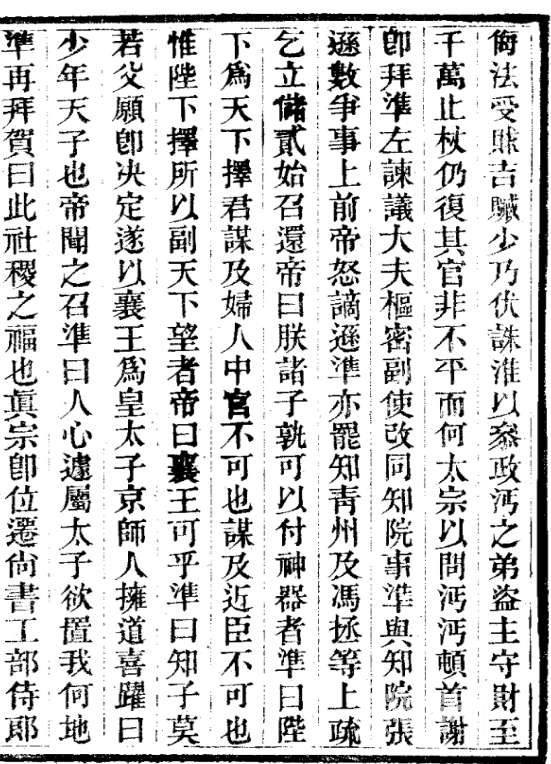 侮法受賕吉贓少乃伏誅淮以參政沔之弟盜主守財至
千萬止杖仍復其官非不平而何太宗以問沔沔頓首謝
卽拜準左諫議大夫樞密副使改同知院事準與知院張
遜數爭事上前帝怒謫遜準亦罷知靑州及馮拯等上疏
乞立儲貳始召還帝曰朕諸子孰可以付神器者準曰陛
下爲天下擇君謀及婦人中官不可也謀及近臣不可也
惟陛下擇所以副天下望者帝曰襄王可乎準曰知子莫
若父願卽決定遂以襄王爲皇太子京師人擁道喜躍曰
少年天子也帝聞之召準曰人心遽屬太子欲置我何地
準再拜賀曰此社稷之福也眞宗卽位遷尙書工部侍郎